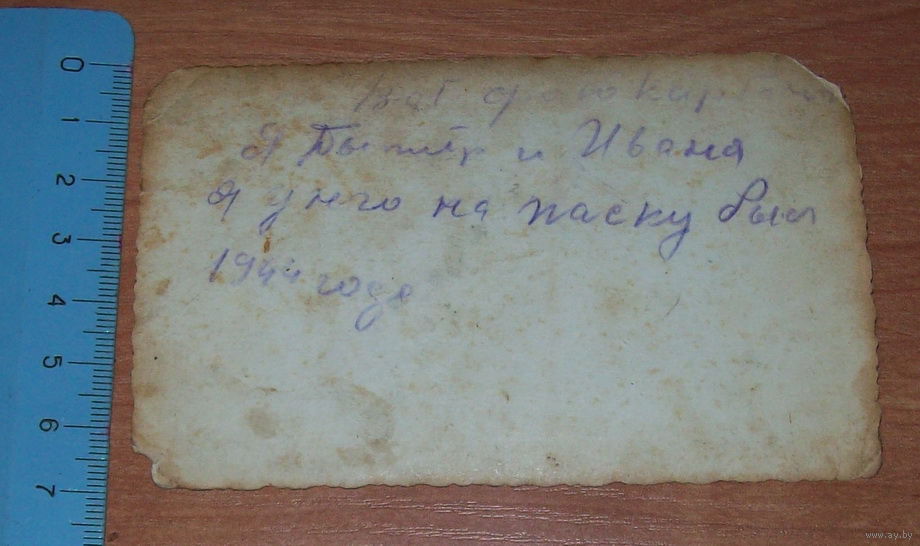 вот фотокарточ
Я и Ивана
я унго на паску был
1944 годе
0
1
2
3
4
5
6
7
www.ay.by